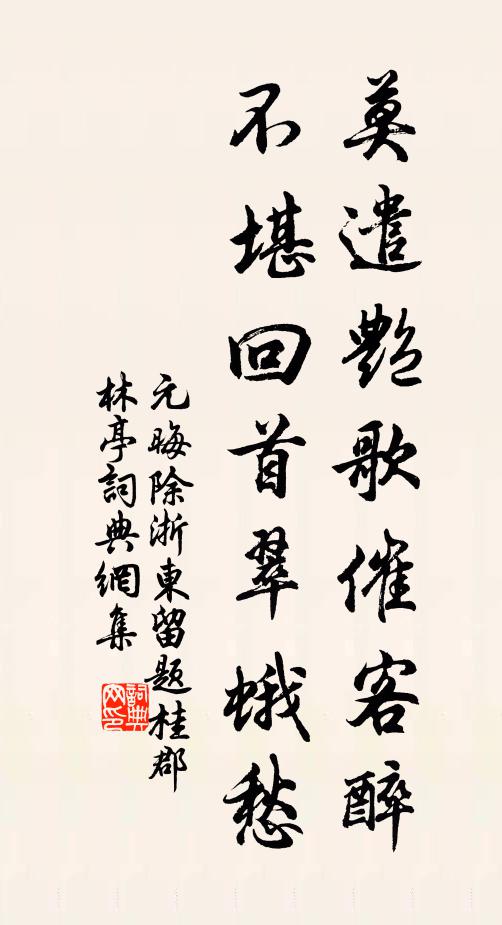 莫遣艷歌催客醉
不堪回首翠蛾愁
元晦除浙東留題桂郡
林亭詞典網集
詞典网印